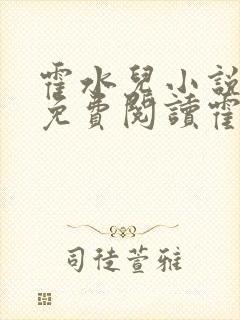 霍水兒小說
免費閱讀霍
司徒萱雅